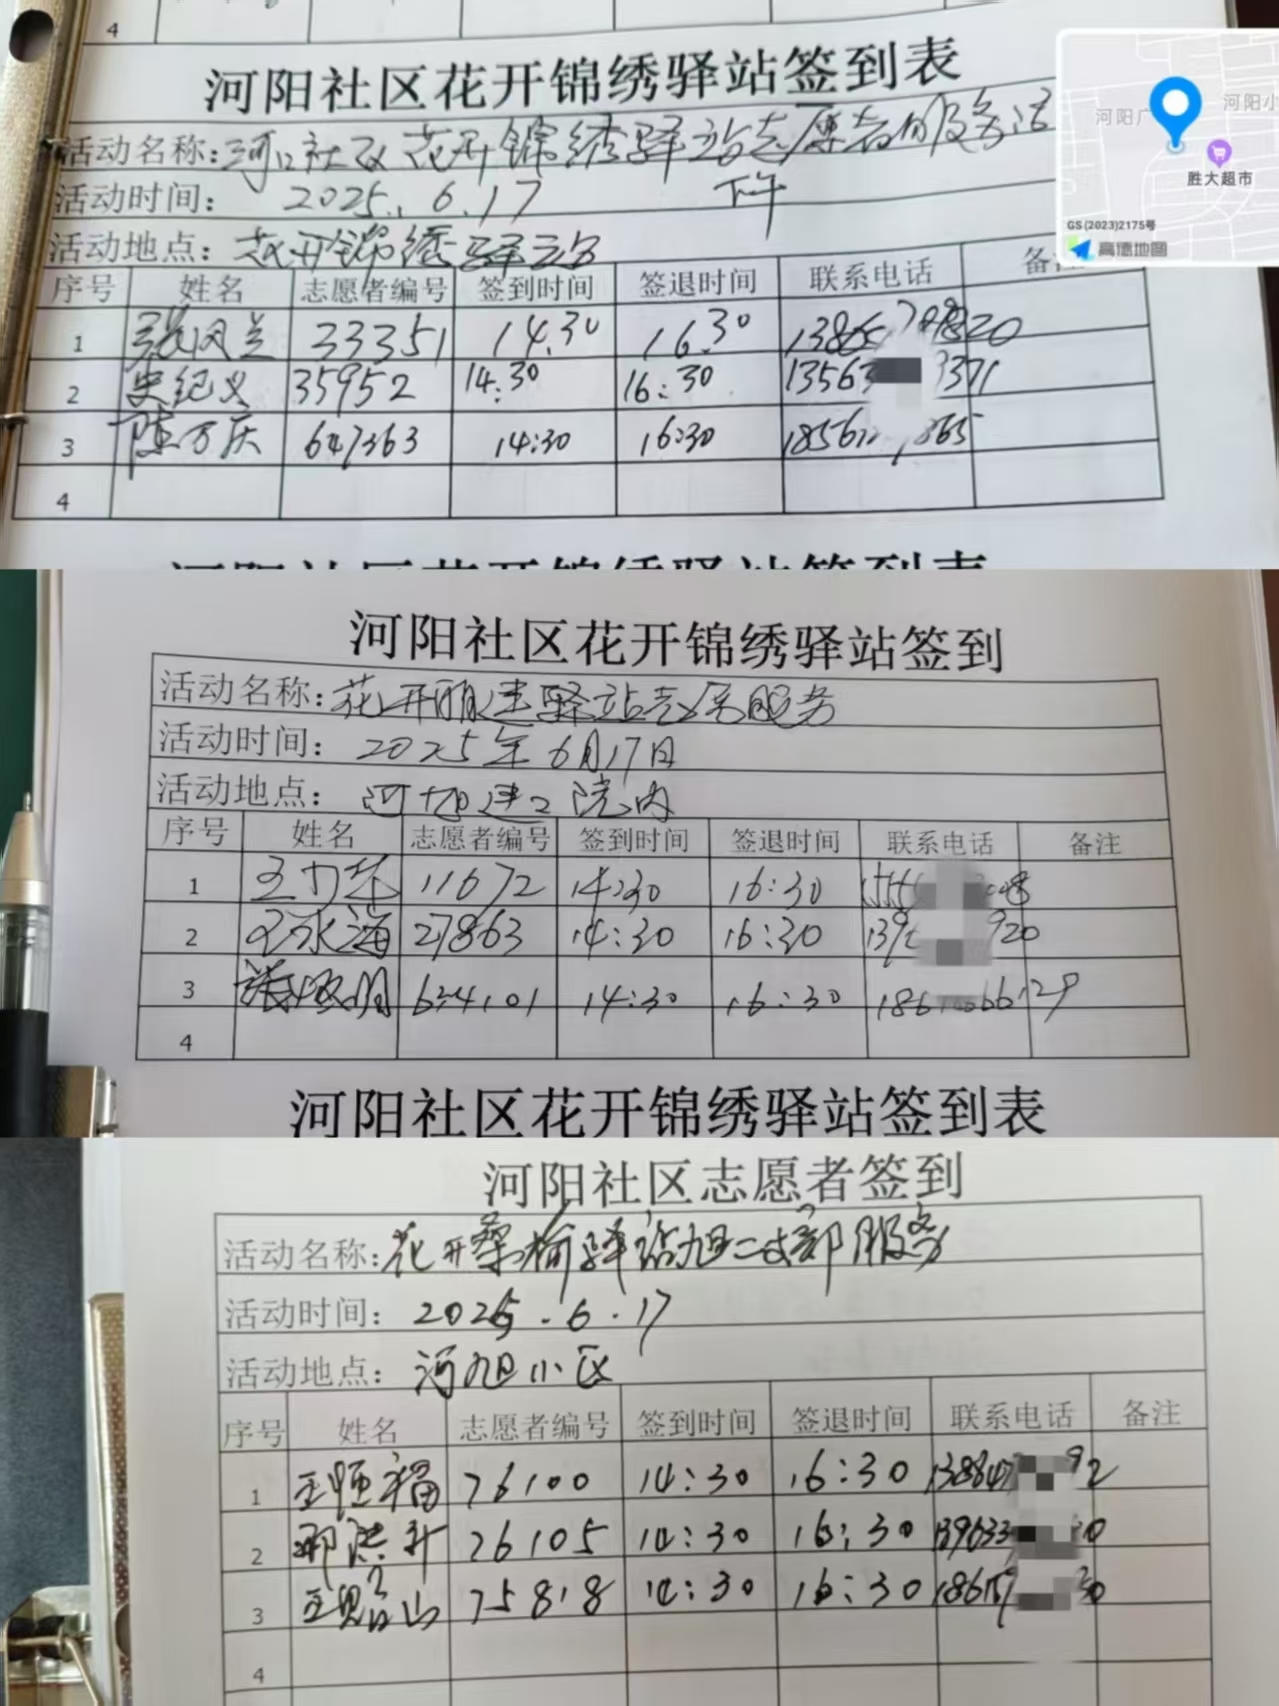 4
河阳社区花开锦绣驿站签到表
活动名称:河口社区花开锦绣驿站志愿者服务活
活动时间: 2025.6.17 下午
活动地点:花开锦绣驿站
序号 姓名 志愿者编号 签到时间 签退时间 联系电话 备注
1 张凤兰 33351 14.30 16.30
2 史纪义 35952 14:30 16:30 13563 3371
3 陈万庆 647363 14:30 16:30 1856 865
4
河阳广
河阳小
胜大超市
GS(2023)2175号
高德地图
河阳社区花开锦绣驿站签到表
河阳社区花开锦绣驿站签到
活动名称:花开 驿站志 服务
活动时间: 2025年6月17日
活动地点: 河旭 院内
序号 姓名 志愿者编号 签到时间 签退时间 联系电话 备注
1 王 11672 14:30 16:30
2 王永海 27863 14:30 16:30 139 920
3 明 634101 14:30 16:30 186 129
4
河阳社区花开锦绣驿站签到表
河阳社区志愿者签到
活动名称:花开桑榆驿站旭二支部服务
活动时间: 2025.6.17
活动地点: 河旭小区
序号 姓名 志愿者编号 签到时间 签退时间 联系电话 备注
1 王恒福 76100 14:30 16:30 138647 92
2 邢洪升 26105 14:30 16:30 139633 30
3 王贻山 75818 14:30 16:30 186 30
4